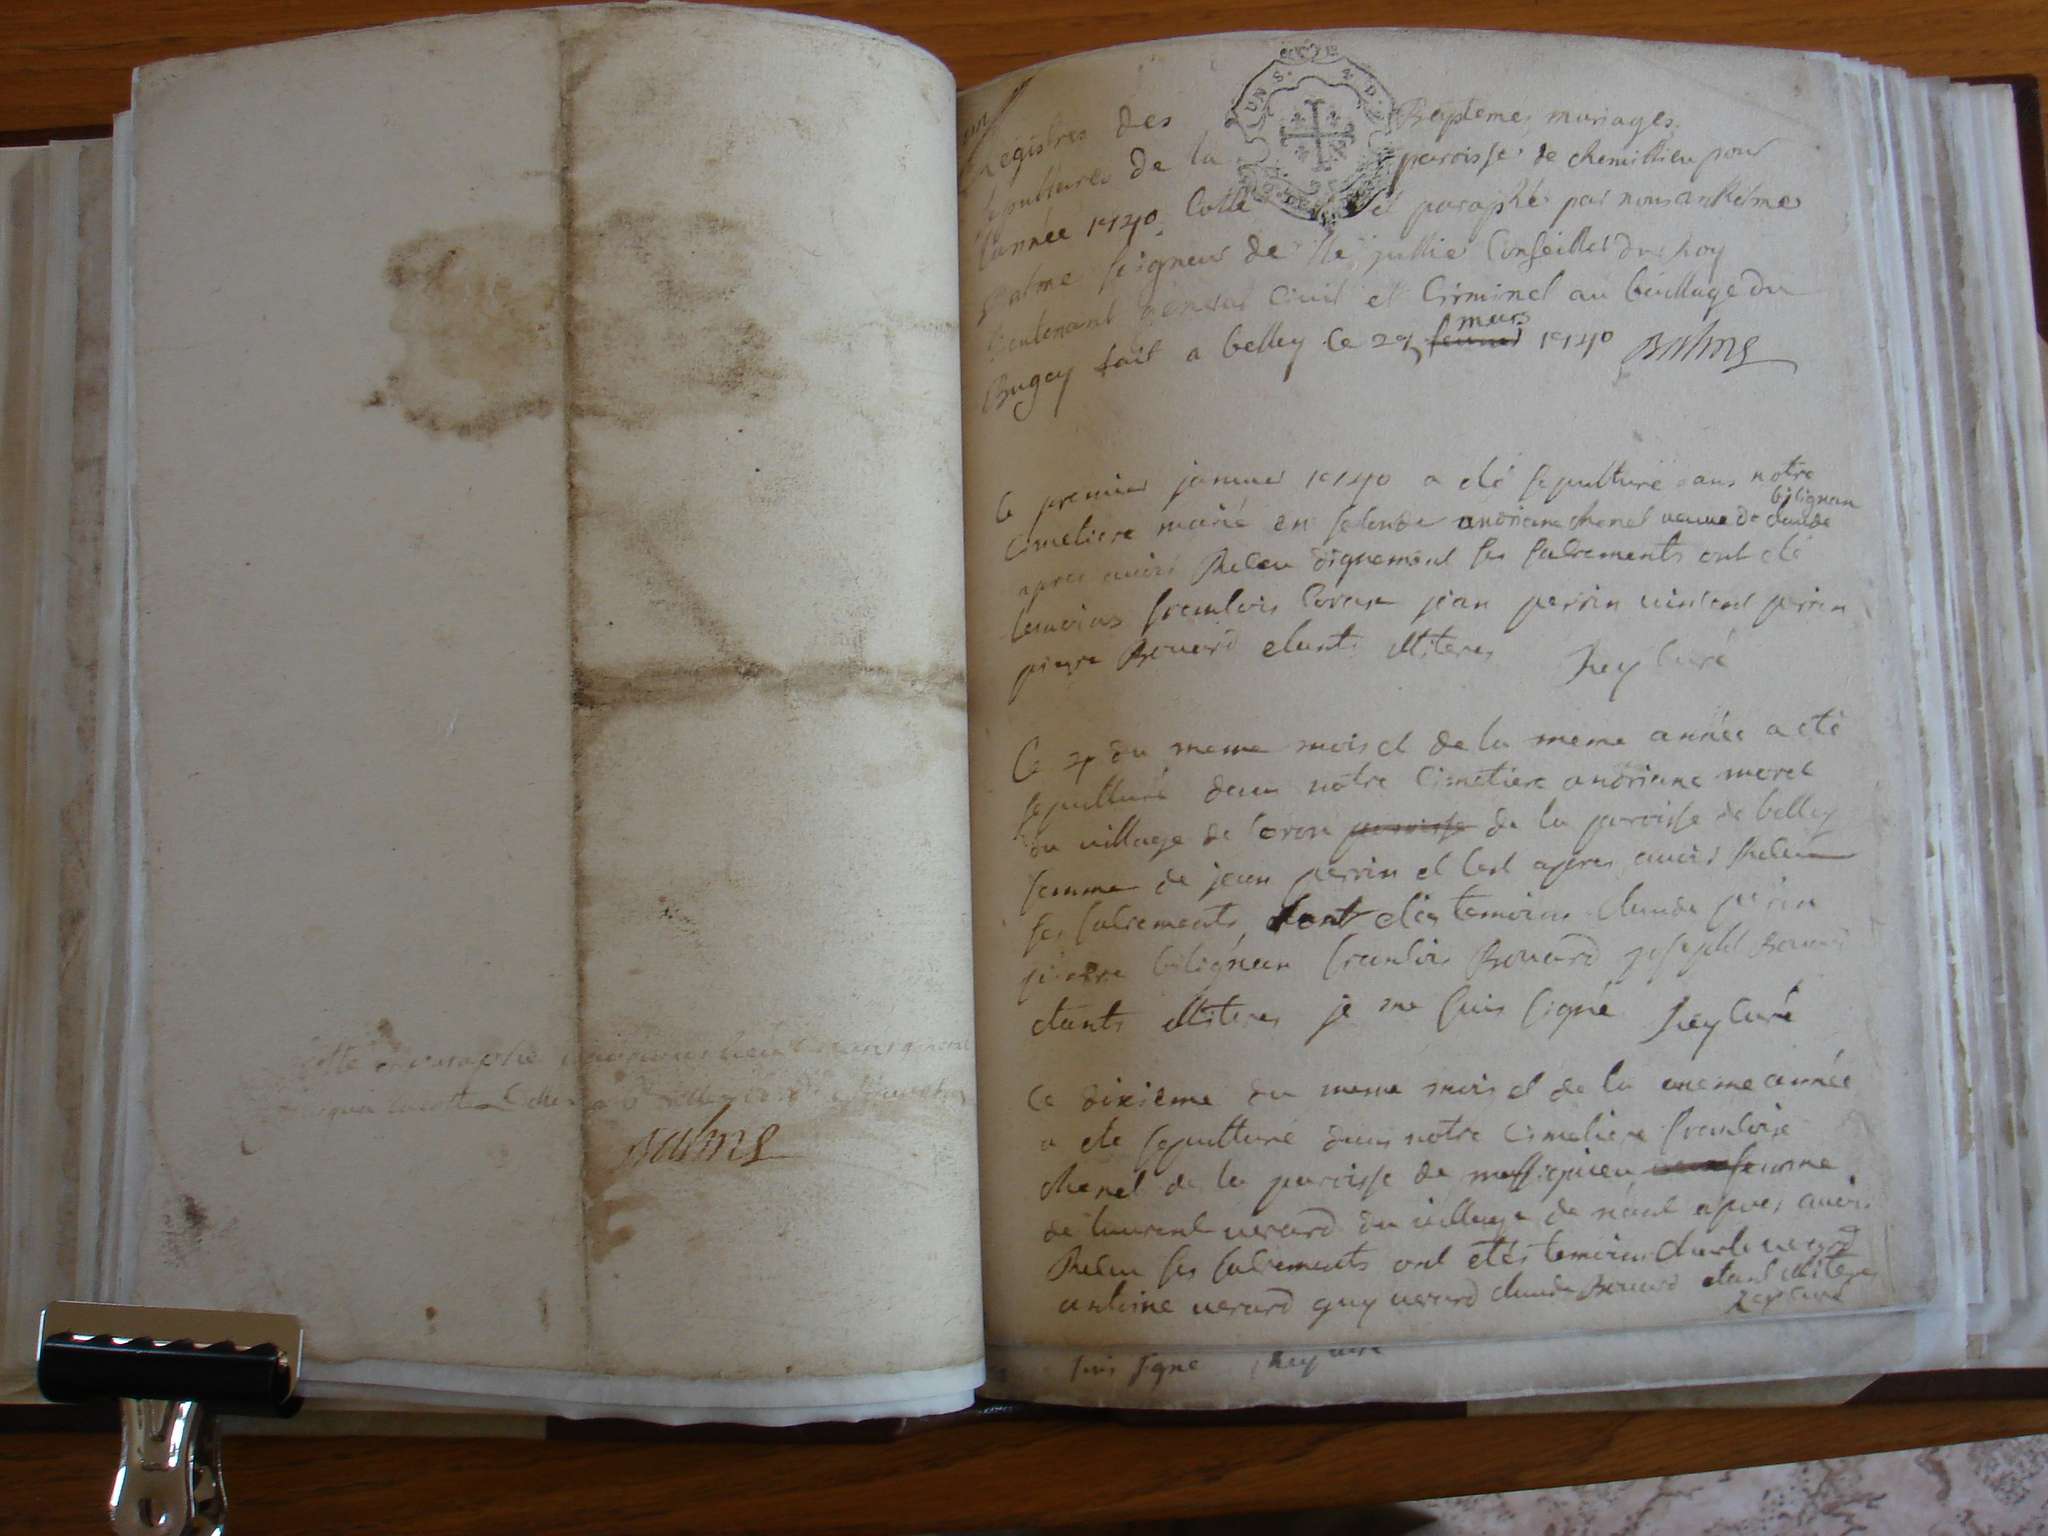 cotté et paraphé
Balme
Registres des Baptemes mariages
sepultures de la paroisse de chemillieu pour
l'année 1740. Cotté et paraphés par nous anthelme
Balme seigneur de ste jullie Conseiller du Roy
lieutenant general Civil et Criminel au bailliage du
Bugey fait a belley ce 29 fevrier mars 1740 Balme
Le premier janvier 1740 a eté sepulturé dans notre
Cimetiere marié en seconde andriane chenel veuve de claude bilignan
apres avoir Receu dignement ses sacrements ont eté
temoins francois Coron jean perrin vincent perrin
pierre Bovard etants illiteres Rey Curé
Le du meme mois et de la meme année a eté
sepulturé dans notre Cimetiere andriane morel
du village de Coron paroisse de la paroisse de belley
femme de jean perrin et cest apres avoir Receu
ses sacrements etés temoins claude perrin
pierre bilignan francois Bovard joseph Bovard
etants illiteres je me suis signé Rey Curé
Le dixieme du meme mois et de la meme année
a eté sepulturé dans notre Cimetiere francoise
chenel de la paroisse de massignieu femme
de laurent verard du village de nant apres avoir
Receu ses sacrements ont etés temoins charle verard
antoine verard guy verard claude Bovard etant illiteres
Rey Curé
suis signé Rey curé